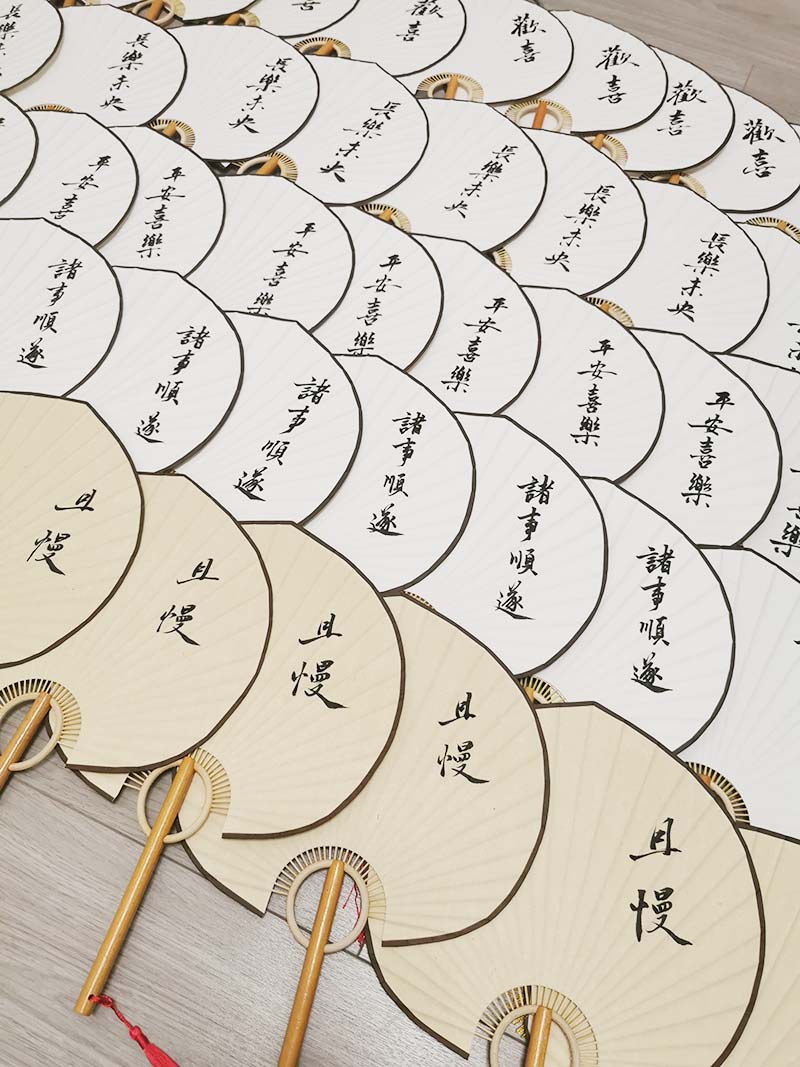 歡喜
歡喜
歡喜
歡喜
歡喜
長樂未央
長樂未央
長樂未央
長樂未央
長樂未央
長樂未央
平安喜
平安喜樂
平安喜樂
平安喜樂
平安喜樂
平安喜樂
平安喜樂
諸事順遂
諸事順遂
諸事順遂
諸事順遂
諸事順遂
諸事順遂
且慢
且慢
且慢
且慢
且慢